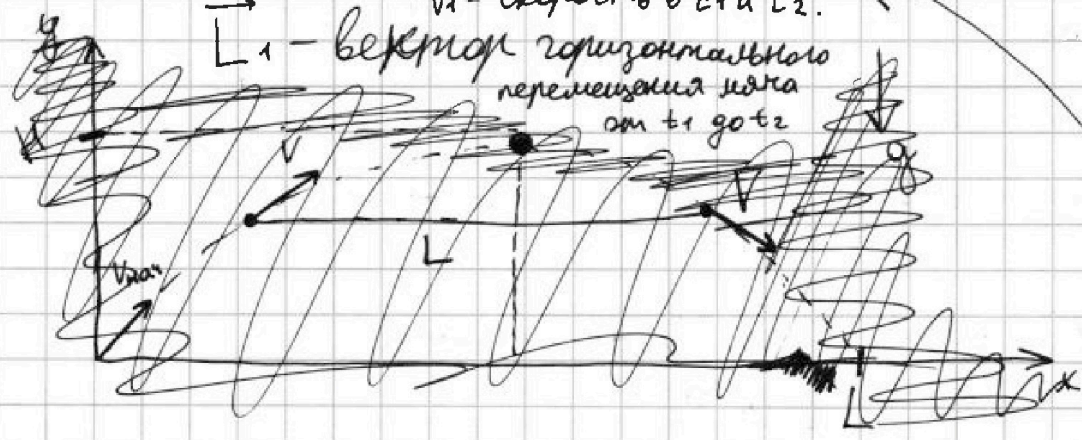 V₁ - скорость в t₁ и t₂.
L₁ - вектор горизонтального
перемещения мяча
от t₁ до t₂
y
H
V
V
g
L
Vнач
L
x